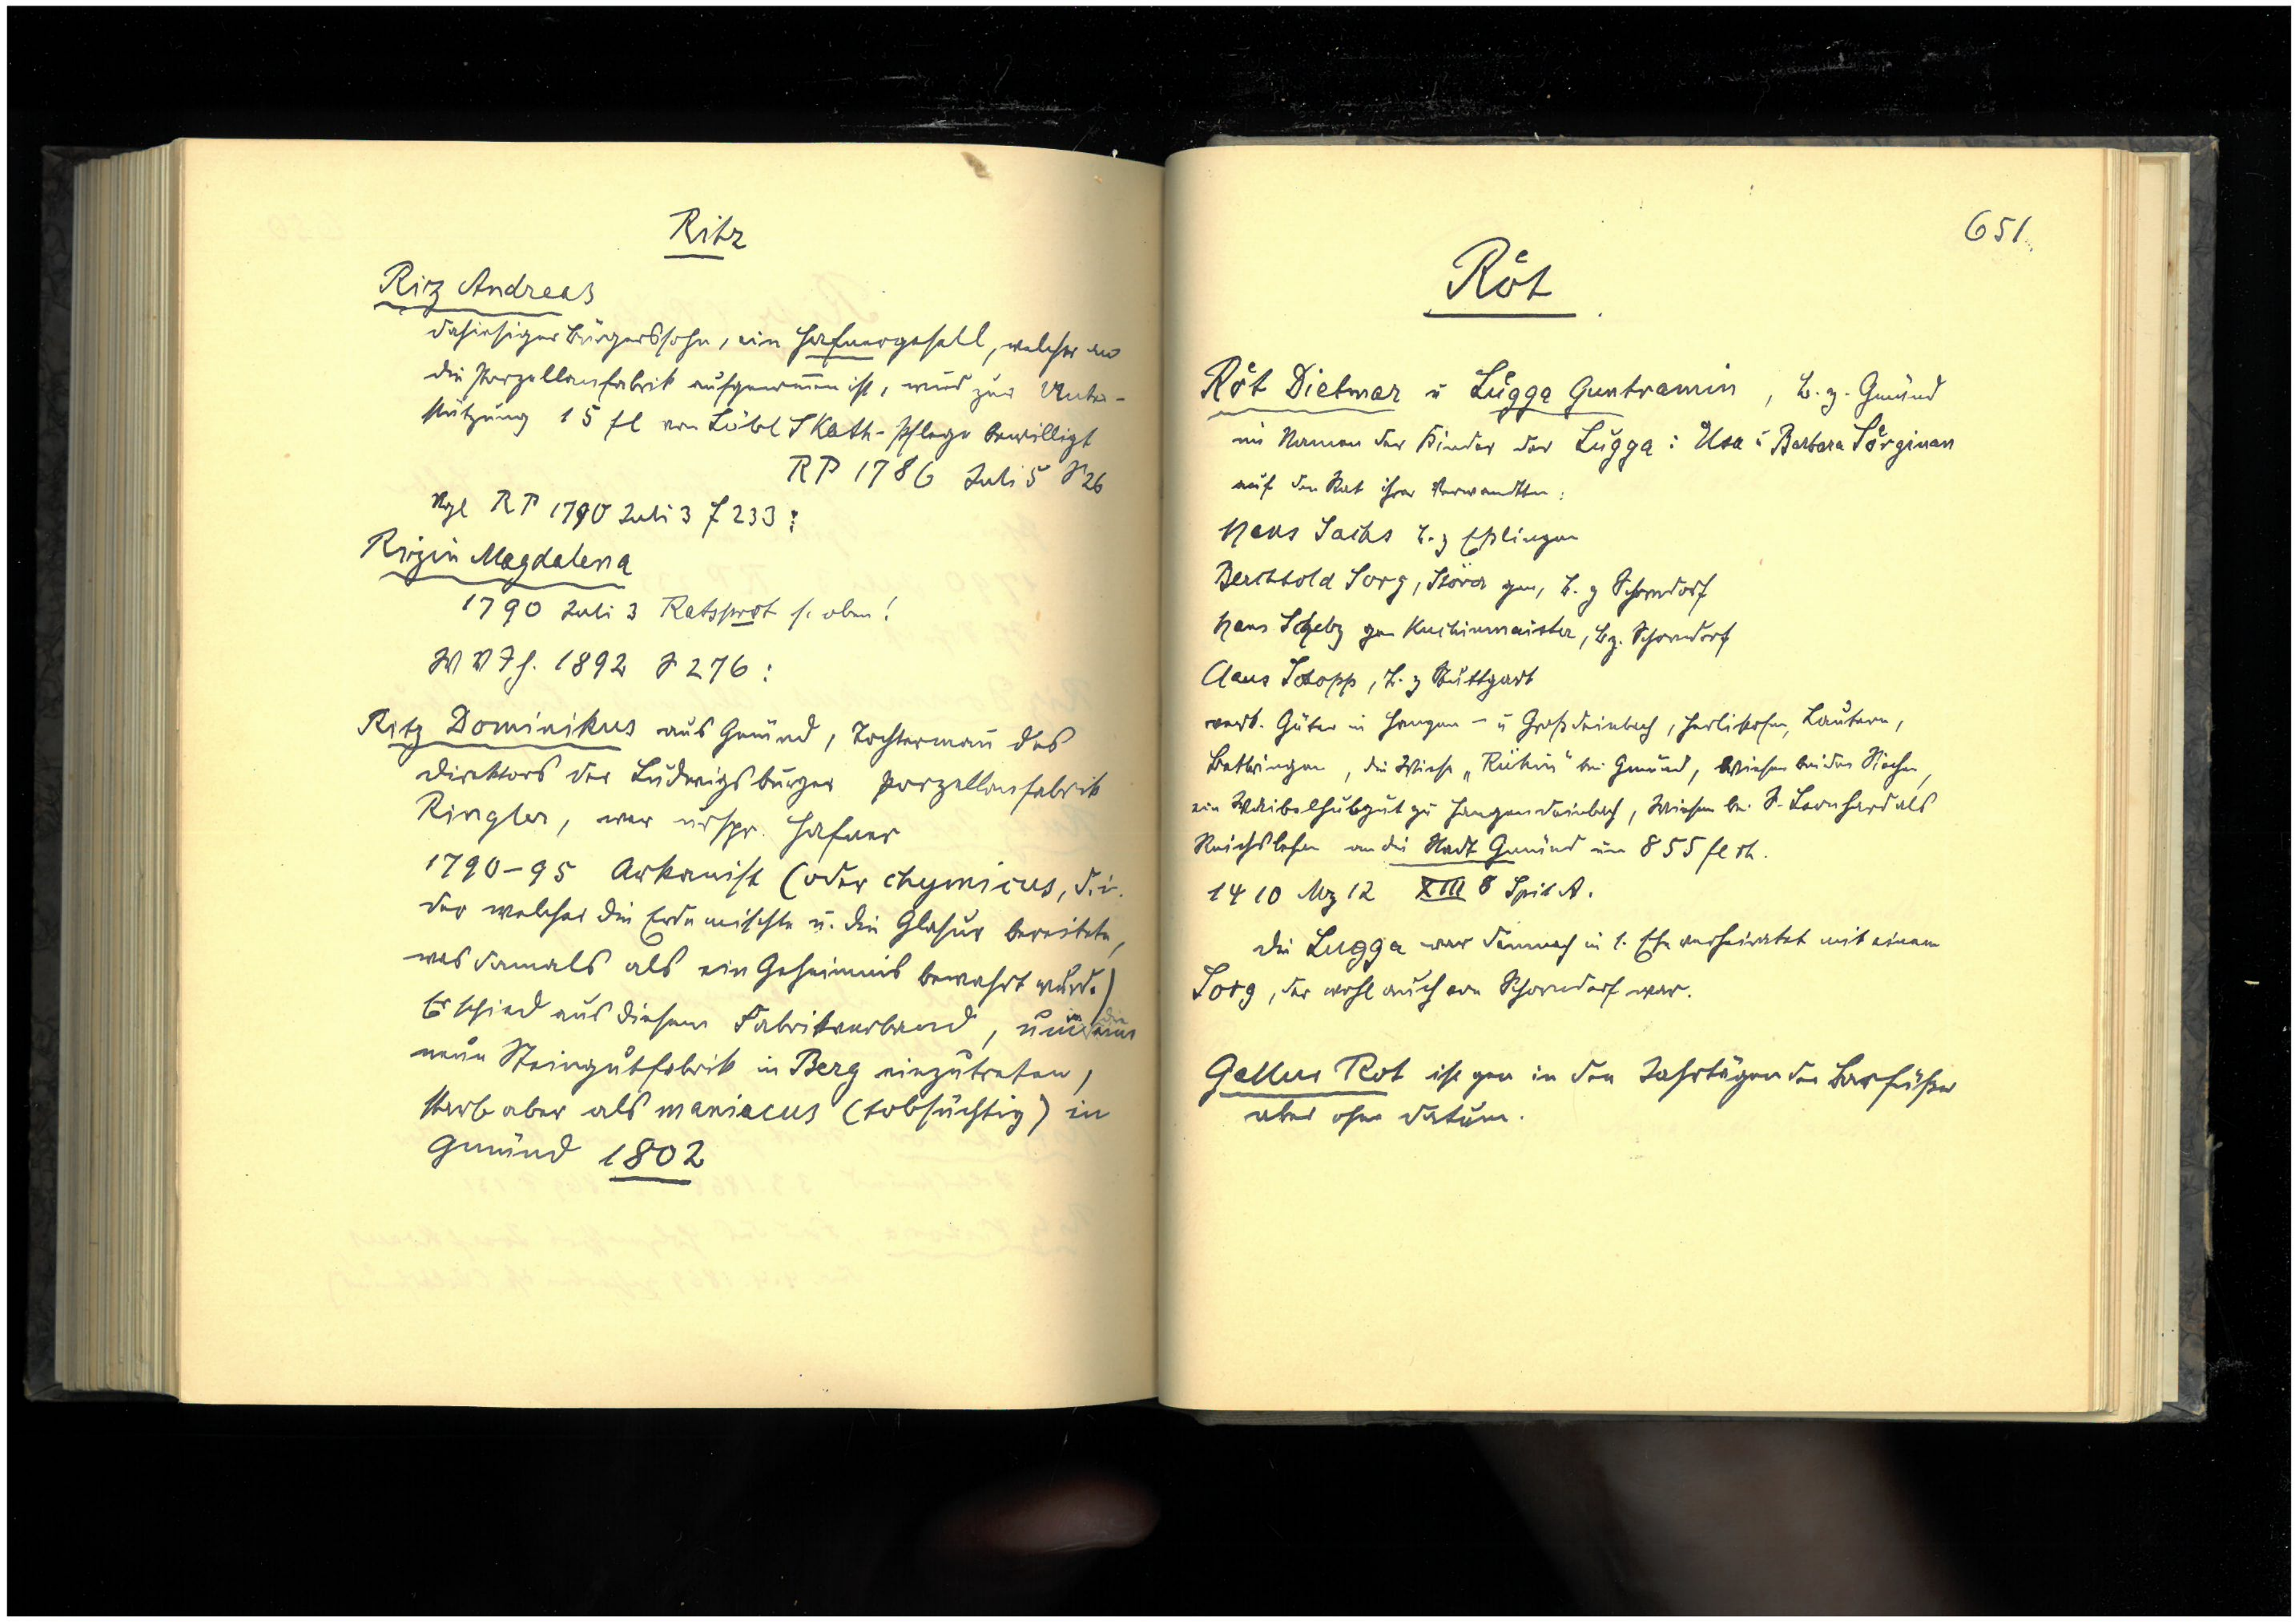 Ritz
Riz Andreas
dahiesiger Bürgerssohn, ein Hafnergesell, welcher an
die Porzellanfabrik aufgenommen ist, wird zur Unter-
stützung 15 fl von Löbl S Kath-Pflege bewilligt
RP 1786 Juli 5 S 26
Vgl RP 1790 Juli 3 f 233:
Rizin Magdalena
1790 Juli 3 Ratsprot s. oben!
W V J h. 1892 S 276:
Ritz Dominikus aus Gmünd, Tochtermann des
Direktors der Ludwigsburger Porzellanfabrik
Ringler, war urspr. Hafner
1790-95 Arkanist (oder chymicus, d. i.
der welcher die Erde mischte u. die Glasur bereitete,
was damals als ein Geheimnis bewahrt wurde)
Er schied aus diesem Fabrikverband, um in die
neue Steingutfabrik in Berg einzutreten,
starb aber als maniacus (tobsüchtig) in
Gmünd 1802
651.
Röt
Röt Dietmar u Lugga Guntramin, b. z. Gmünd
im Namen der Kinder der Lugga: Usa u Barbara Sörginan
auf den Rat ihrer Verwandten:
Hans Sachs b. z Eßlingen
Berchtold Sorg, Störer gen, b. z Schorndorf
Hans gen Kuchinmaister, b z. Schorndorf
Claus , b. z Stuttgart
verk. Güter in Hangen- u Großdeinbach, Herlikofen, Lautern,
Bettringen, die Wiese „ “ bei Gmünd, Wiesen bei den Siechen,
ein Waibelhubgut zu Hangendeinbach, Wiesen bei S. Leonhard als
Reichslehen an die Stadt Gmünd um 855 fl rh.
1410 Mz 12 XIII 8 Spit A.
Die Lugga war demnach in 1. Ehe verheiratet mit einem
Sorg, der wohl auch von Schorndorf war.
Gallus Rot ist gen in den Jahrtägen der Barfüßer
aber ohne Datum.